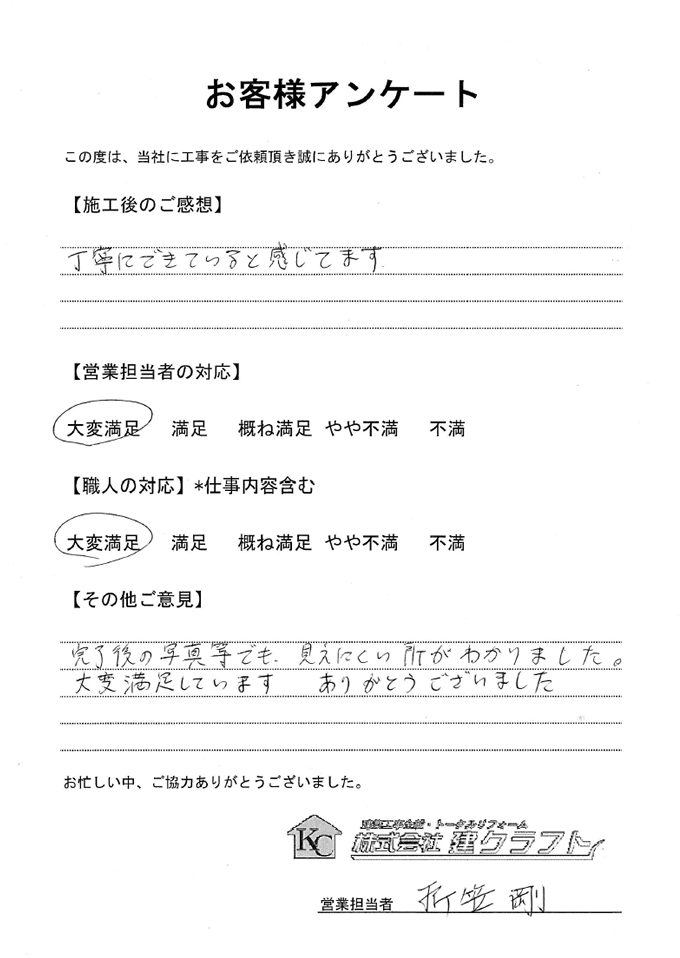 お客様アンケート
この度は、当社に工事をご依頼頂き誠にありがとうございました。
【施工後のご感想】
丁寧にできていると感じてます
【営業担当者の対応】
大変満足 満足 概ね満足 やや不満 不満
【職人の対応】*仕事内容含む
大変満足 満足 概ね満足 やや不満 不満
【その他ご意見】
完了後の写真等でも、見えにくい所がわかりました。
大変満足しています ありがとうございました
お忙しい中、ご協力ありがとうございました。
建築工事全般・トータルリフォーム
KC 株式会社 建クラフト
営業担当者 折笠 剛